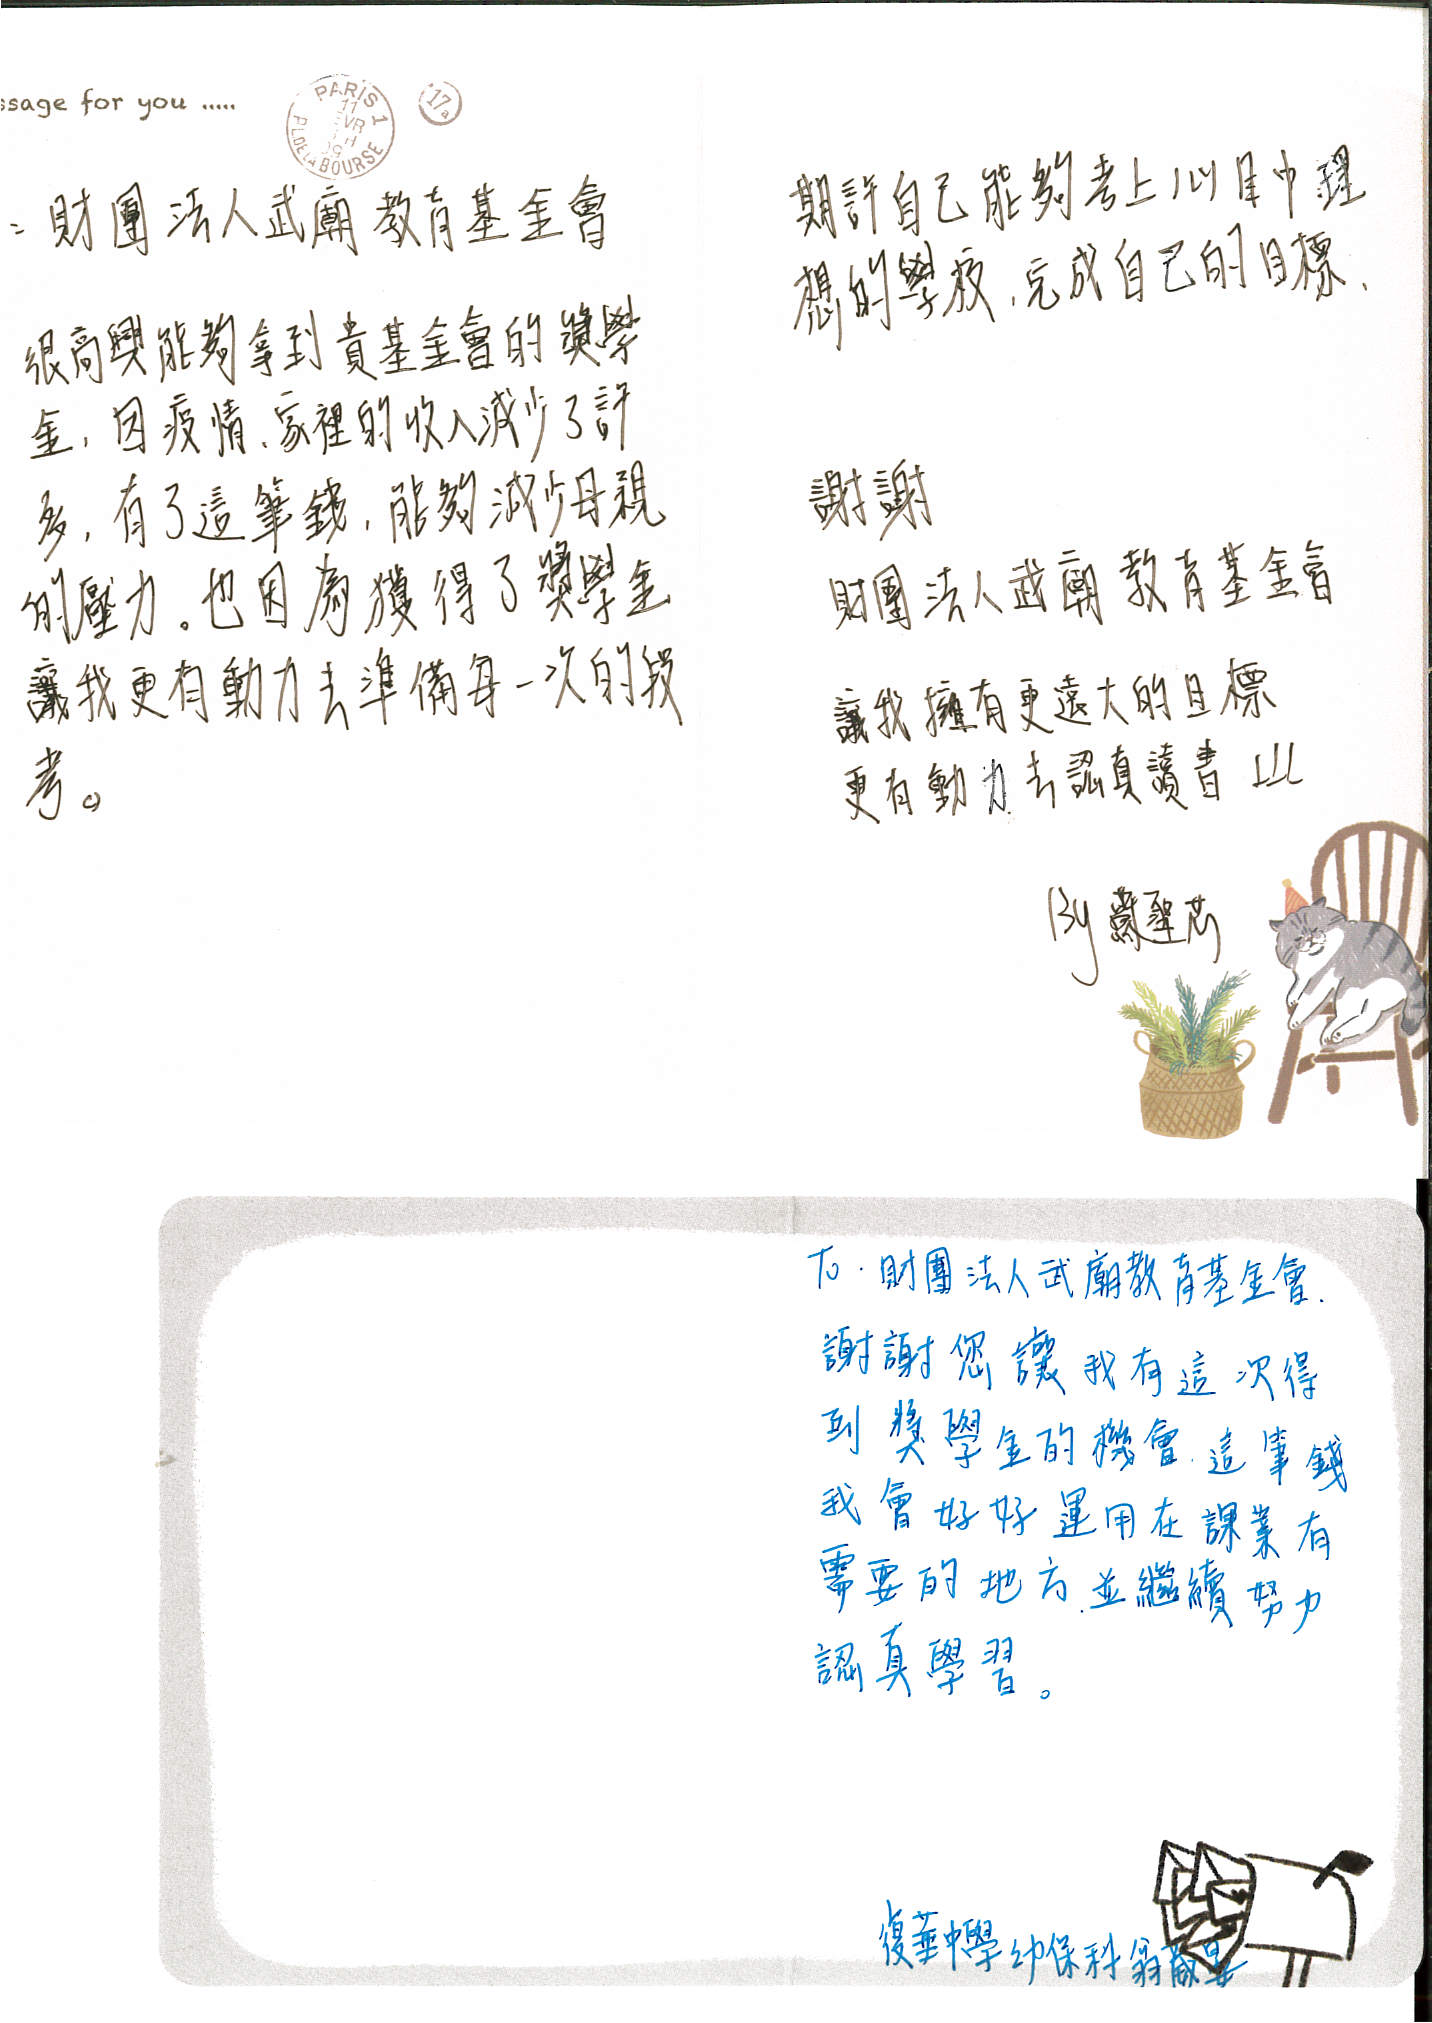 ssage for you .....
PARIS 1
11
VR
PL DE LA BOURSE
17a
：財團法人武廟教育基金會
很高興能夠拿到貴基金會的獎學
金，因疫情、家裡的收入減少了許
多，有了這筆錢，能夠減少母親
的壓力。也因為獲得了獎學金
讓我更有動力去準備每一次的段
考。
期許自己能夠考上心目中理
想的學校，完成自己的目標、
謝謝
財團法人武廟教育基金會
讓我擁有更遠大的目標
更有動力去認真讀書!!!
By 蘇聖
To.財團法人武廟教育基金會.
謝謝您讓我有這次得
到獎學金的機會.這筆錢
我會好好運用在課業有
需要的地方.並繼續努力
認真學習。
復華中學幼保科翁